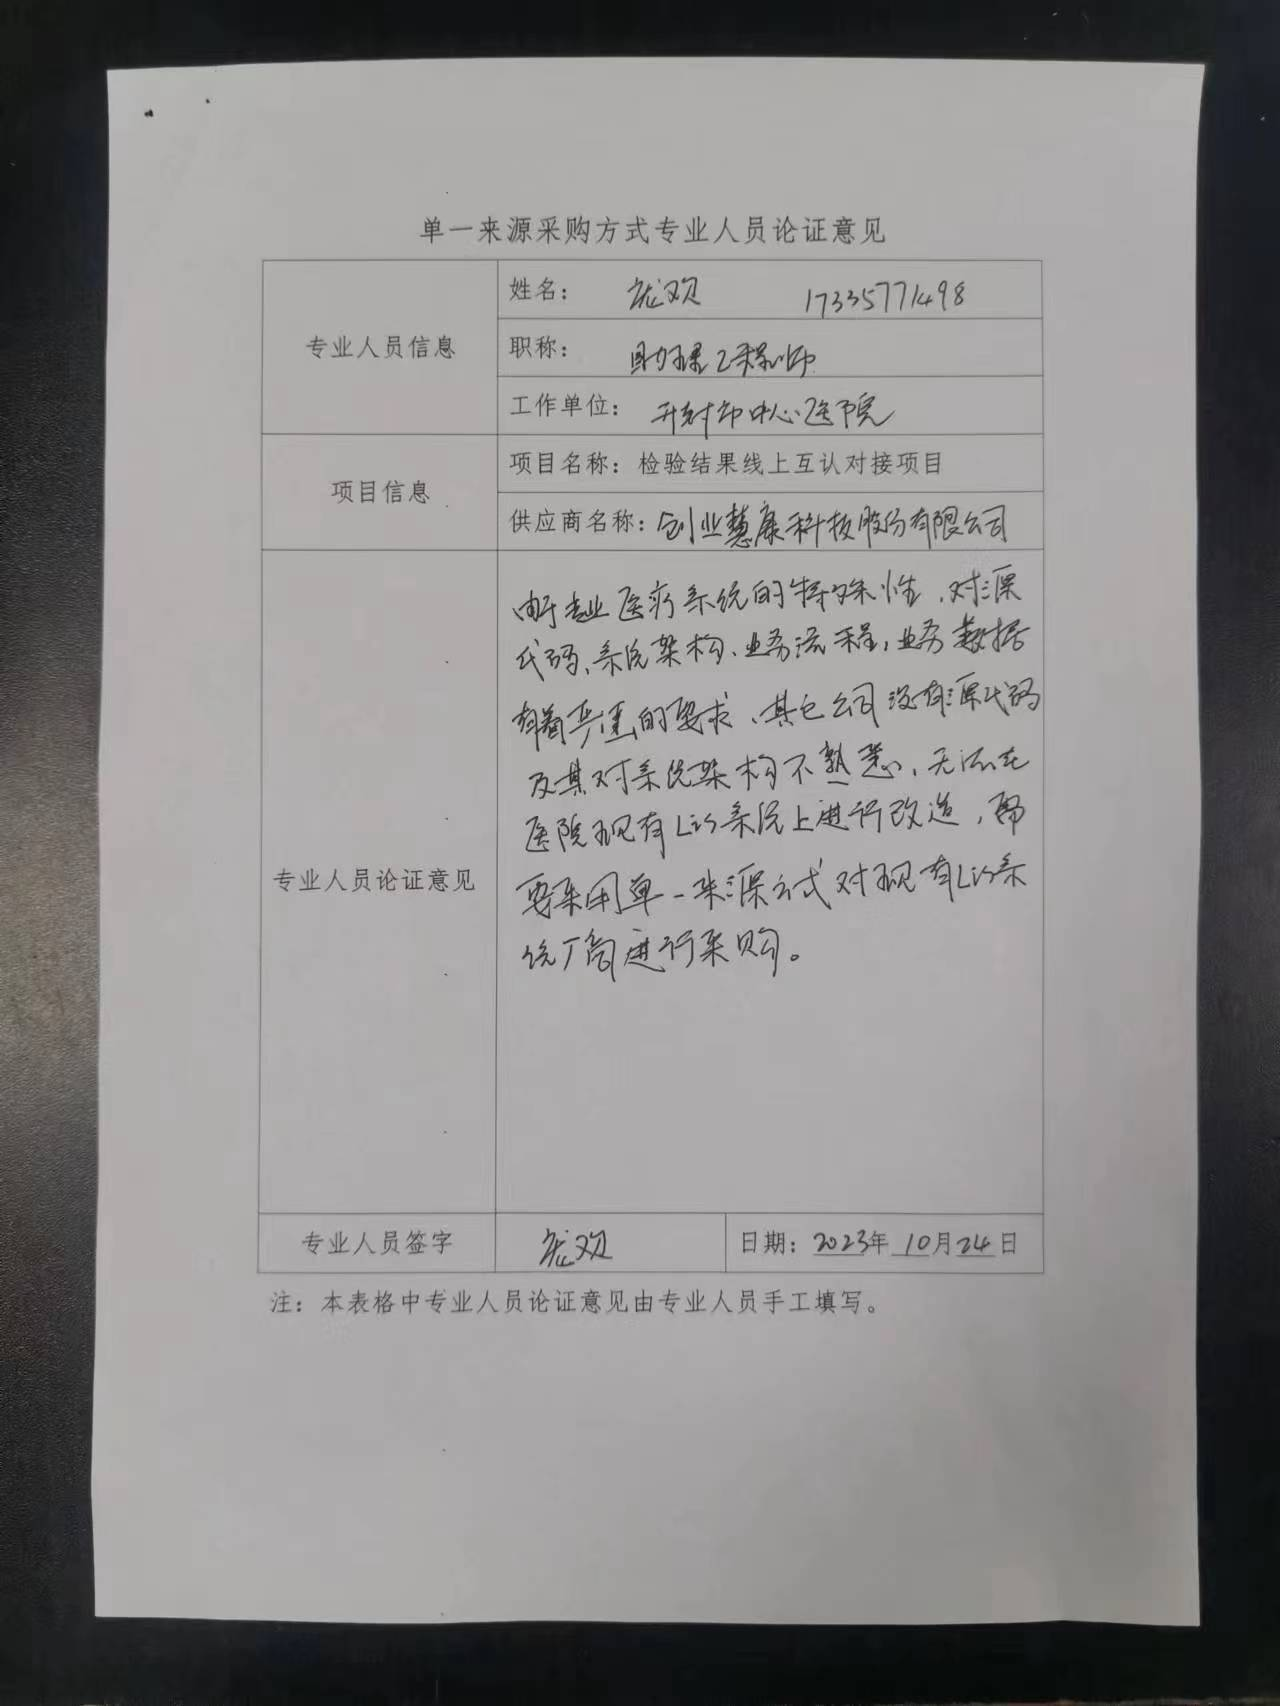 单一来源采购方式专业人员论证意见
专业人员信息
姓名： 欢 17335771498
职称： 助理工程师
工作单位： 开封市中心医院
项目信息
项目名称：检验结果线上互认对接项目
供应商名称：创业慧康科技股份有限公司
专业人员论证意见
由于专业医疗系统的特殊性，对源
代码、系统架构、业务流程，业务数据
有着严谨的要求，其它公司没有源代码
及其对系统架构不熟悉，无法在
医院现有Lis系统上进行改造，需
要采用单一来源方式对现有Lis系
统厂商进行采购。
专业人员签字
欢
日期：2023年10月24日
注：本表格中专业人员论证意见由专业人员手工填写。